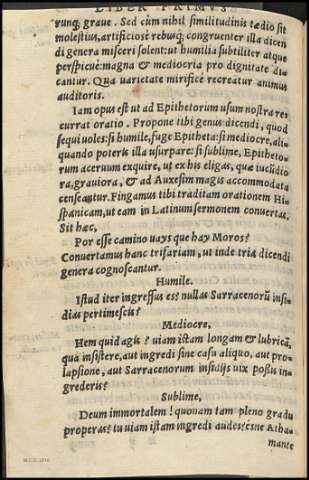 LIBER PRIMVS
runq; graue. Sed cùm nihil similitudinis tædio sit
molestius, artificiosè rebusq; congruenter illa dicen
di genera misceri solent: ut humilia subtiliter atque
perspicuè: magna & mediocria pro dignitate di
cantur. Qua uarietate mirificè recreatur animus
auditoris.
Iam opus est ut ad Epithetorum usum nostra re
currat oratio. Propone tibi genus dicendi, quod
sequi uoles: si humile, fuge Epitheta: si mediocre, ali
quando poteris illa usurpare: si sublime, Epitheto
rum aceruum exquire, ut ex his eligas, quæ iucudio
ra, grauiora, & ad Auxesim magis accommodata
censeantur. Fingamus tibi traditam orationem Hi
spanicam, ut eam in Latinum sermonem conuertas.
Sit hæc,
Por esse camino uays que hay Moros?
Conuertamus hanc trifariam, ut inde tria dicendi
genera cognoscantur.
Humile.
Istud iter ingressus es? nullas Sarracenorū insi
dias pertimescis?
Mediocre,
Hem quid agis? uiam istam longam & lubricā,
qua insistere, aut ingredi sine casu aliquo, aut pro
lapsione, aut Sarracenorum insidijs uix possis in
grederis?
Sublime,
Deum immortalem! quonam tam pleno gradu
properas? tu uiam istam ingredi audes? es'ne Atha
mante